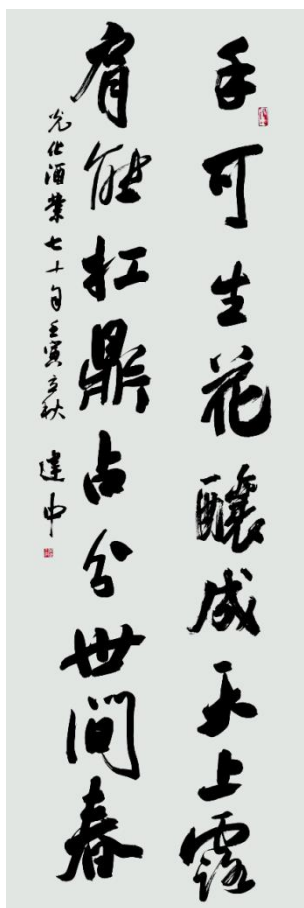 手可生花酿成天上露
肩能扛鼎占分世间春
光化酒业七十句壬寅立秋 建中